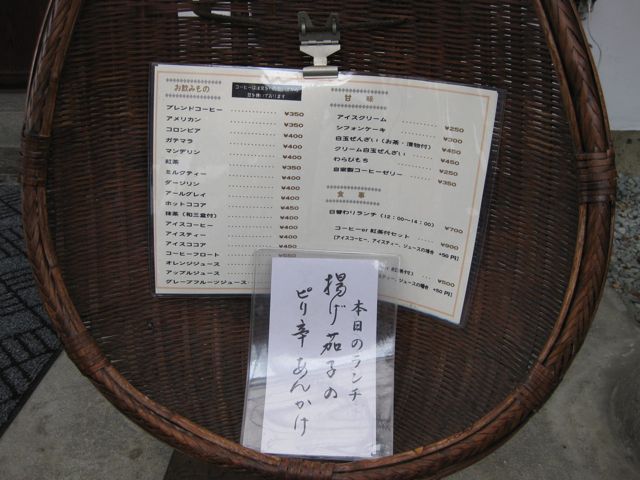 お飲みもの
ブレンドコーヒー ¥350
アメリカン ¥350
コロンビア ¥400
ガテマラ ¥400
マンデリン ¥400
紅茶 ¥350
ミルクティー ¥400
ダージリン ¥400
アールグレイ ¥400
ホットココア ¥450
抹茶（和三盆付） ¥400
アイスコーヒー ¥400
アイスティー ¥400
アイスココア ¥450
コーヒーフロート ¥550
オレンジジュース
アップルジュース
グレープフルーツジュース
甘味
アイスクリーム ¥250
シフォンケーキ ¥300
白玉ぜんざい（お茶・漬物付） ¥450
クリーム白玉ぜんざい ¥450
わらびもち ¥250
自家製コーヒーゼリー ¥350
食事
日替わりランチ（12：00〜14：00） ¥700
コーヒーor 紅茶付セット ¥900
[アイスコーヒー、アイスティー、ジュースの場合 +50円]
¥500
ジュースの場合 +50円]
本日のランチ
揚げ茄子の
ピリ辛あんかけ